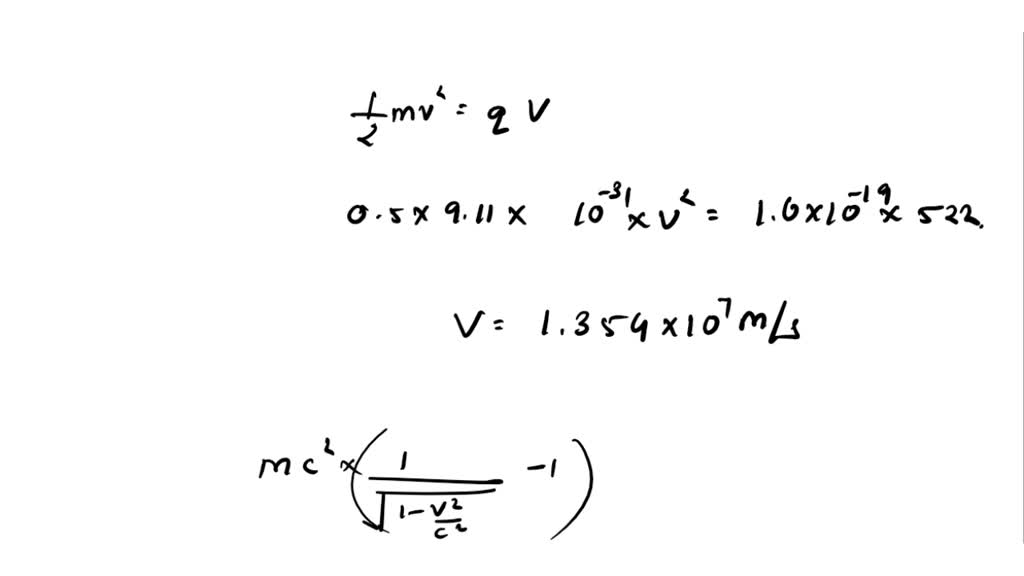 1/2 mv² = q V
0.5 x 9.11 x 10⁻³¹ x v² = 1.6x10⁻¹⁹ x 522.
V = 1.354 x10⁷ m/s
mc² x (1/√(1-v²/c²) -1)